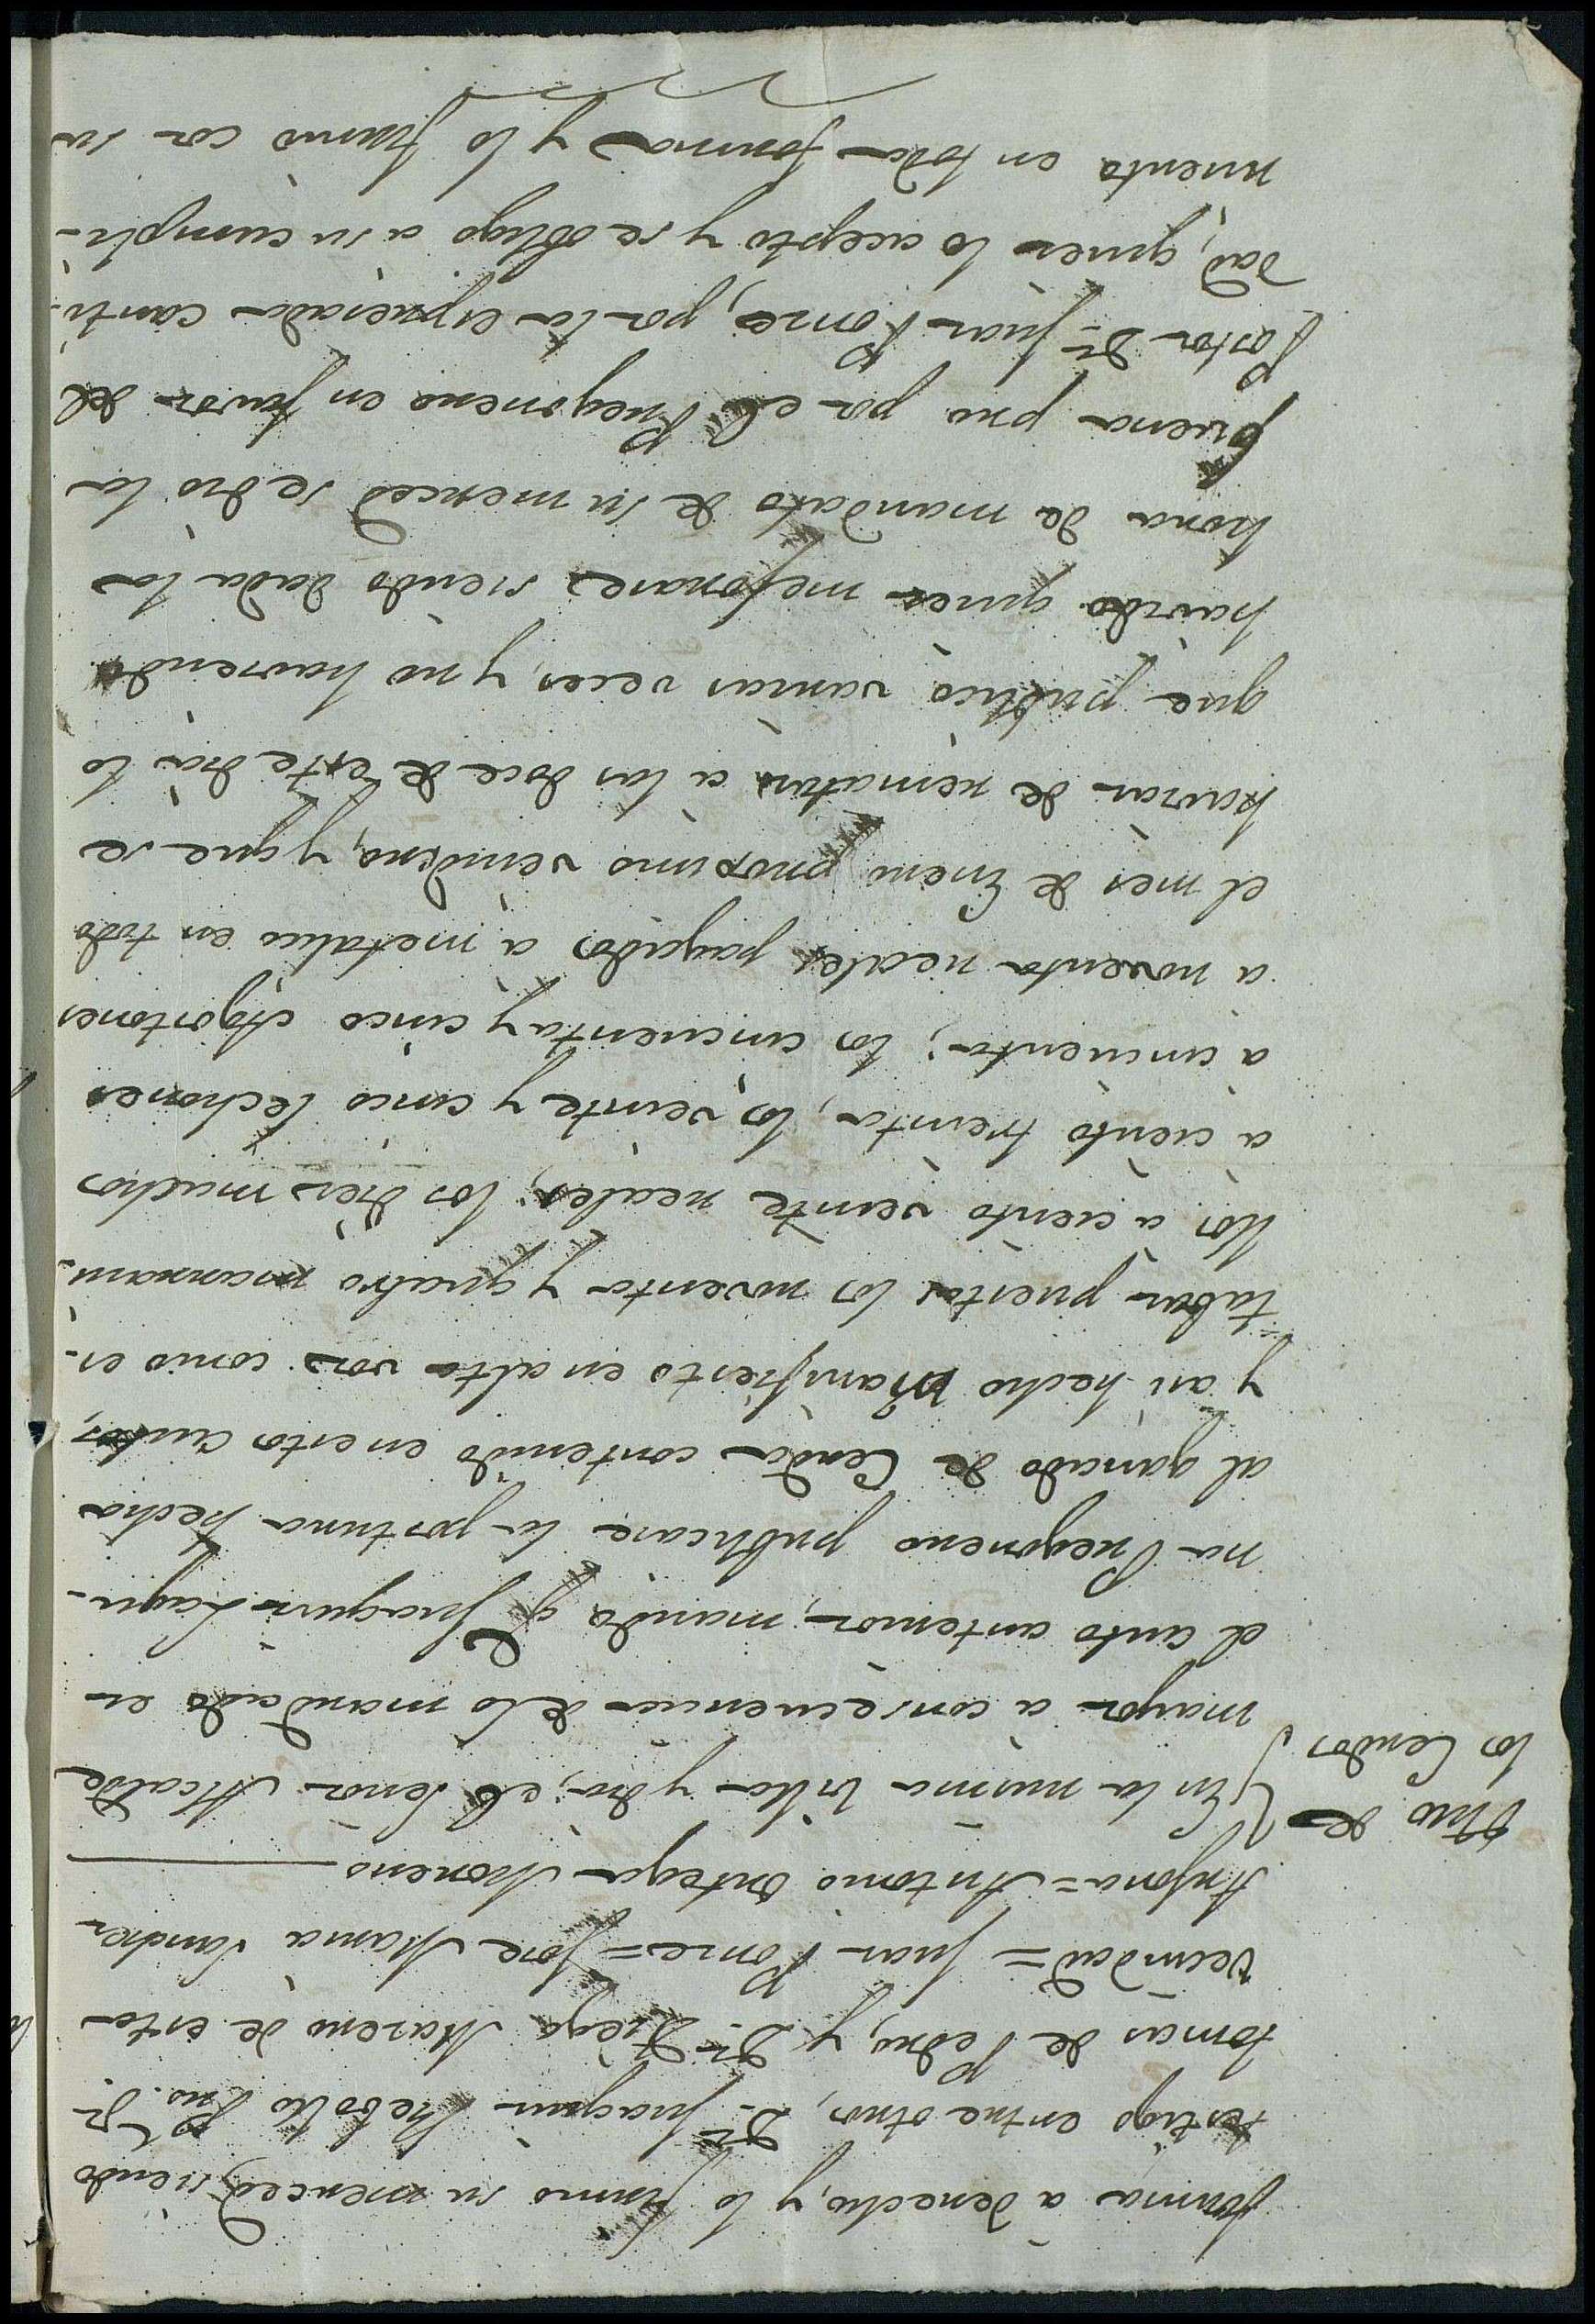 forma a derecho, y lo firmo su merced, siendo
testigo entre otros, Dn. Juaquin Rebollo Pno. Dn.
Tomas de Pedro, y Dn. Diego Mareno de esta
vecindad = Juan Ponze = Jose Maria Sanchez
Anfona = Antonio Ortega Moreno
Otro de
los Cerdos
En la misma Villa y dia; el Señor Alcalde
mayor a consequencia de lo mandado en
el auto anterior, mandó q. Juaquin Lagu-
na Pregonero publicase la postura hecha
al ganado de Cerda contenido en estos autos,
y asi hecho Manifiesto en alta voz como es-
taban puestos los noventa y quatro marrani-
llos a ciento veinte reales; los diez machos
a ciento treinta, los veinte y cinco lechones
a cincuenta; los cincuenta y cinco Agostones
a noventa reales pagados a metalico en todo
el mes de Enero proximo venidero, y que se
havian de rematar a las doce de este dia lo
que publicó varias veces, y no haviendo
havido quien mejorare siendo dada la
hora de mandato de su merced se dio la
buena pro por el Pregonero en favor del
Postor Dn. Juan Ponze, por la espresada canti-
dad, quien lo acepto y se obligo a su cumpli-
miento en toda forma y lo firmó con su